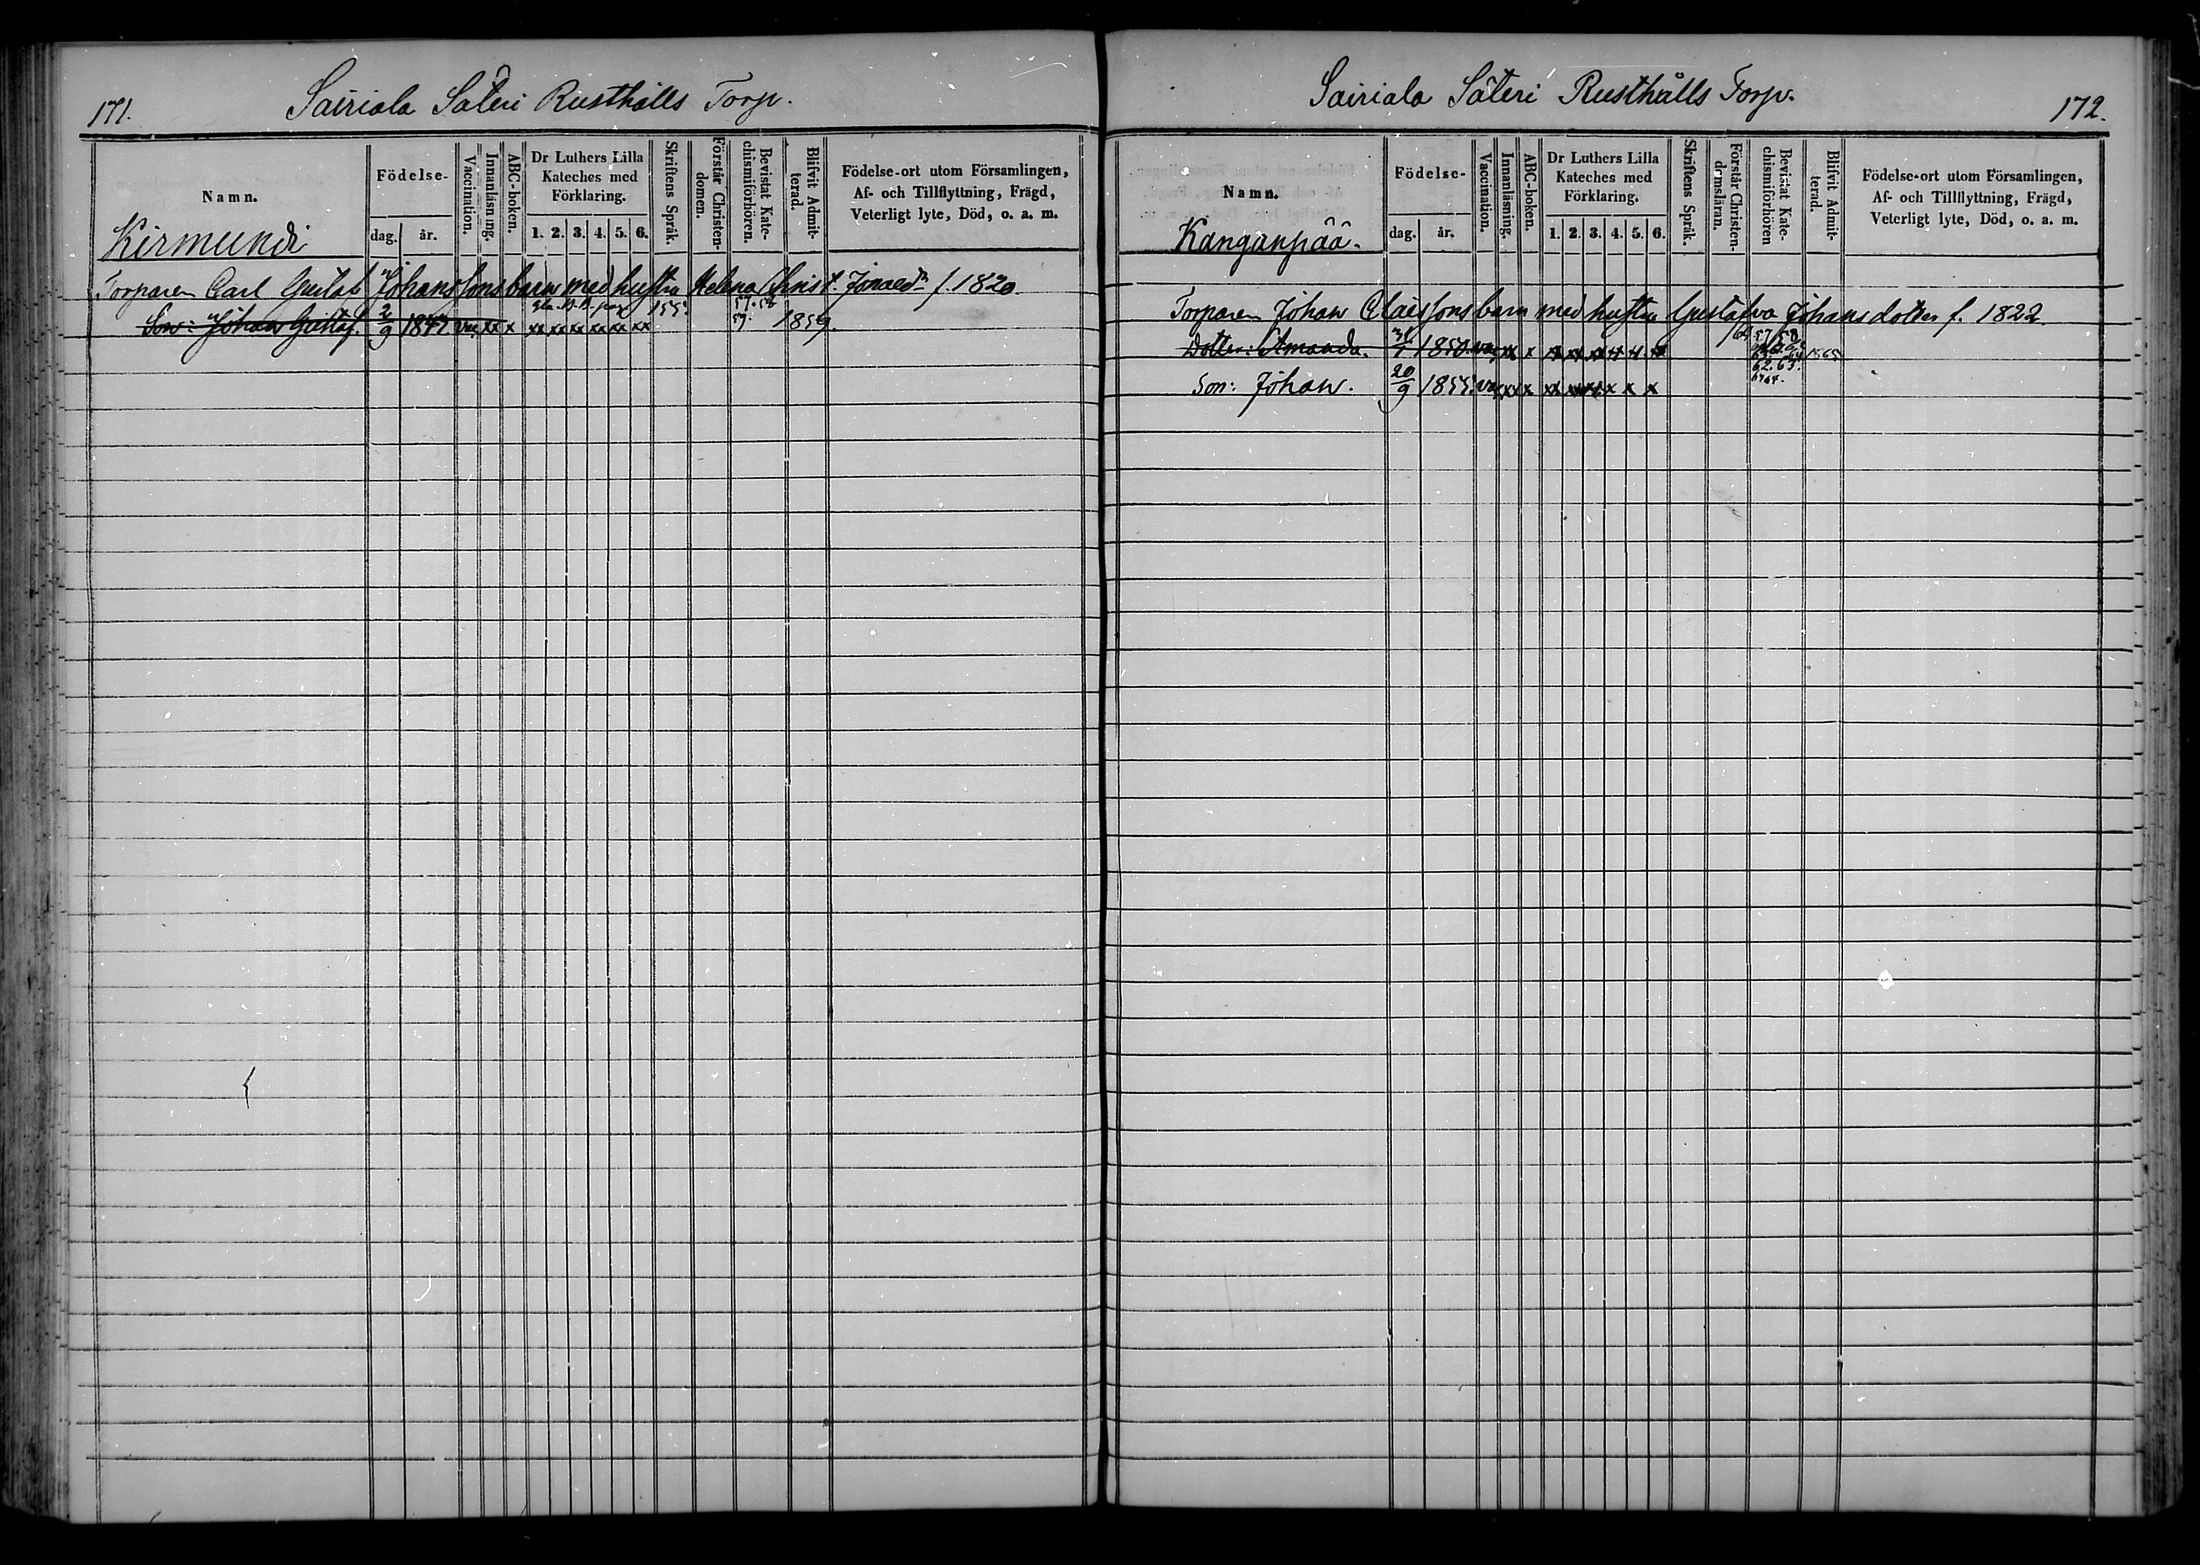 171.
Sairiala Säteri Rusthålls Torp.
Namn.
Födelse-
dag. år.
Vaccination.
Innanläsning.
ABC-boken.
Dr Luthers Lilla
Kateches med
Förklaring.
1. 2. 3. 4. 5. 6.
Skriftens Språk.
Förstår Christen-
domen.
Bevistat Kate-
chismiförhören.
Blifvit Admit-
terad.
Födelse-ort utom Församlingen,
Af- och Tillflyttning, Frägd,
Veterligt lyte, Död, o. a. m.
Kirmundi
Torparen Carl Gustaf Johanssons barn med hustru Helena Christ. f. 1820.
Son: Johan Gustaf. 2/9 1847 vac xx x xx xx xx xx xx xx 155 57. 58 59. 1859.
172.
Sairiala Säteri Rusthålls Torp.
Namn.
Födelse-
dag. år.
Vaccination.
Innanläsning.
ABC-boken.
Dr Luthers Lilla
Kateches med
Förklaring.
1. 2. 3. 4. 5. 6.
Skriftens Språk.
Förstår Christen-
domsläran.
Bevistat Kate-
chismiförhören
Blifvit Admit-
terad.
Födelse-ort utom Församlingen,
Af- och Tillflyttning, Frägd,
Veterligt lyte, Död, o. a. m.
Kanganpää.
Torparen Johan Claessons barn med hustru Gustafva Johansdotter f. 1822.
Dotter: Amanda. 1850. vac xx x 64 57/58 1865
Son: Johan. 20/9 1855. vac xx x xx xx x x x 62. 63. 64.